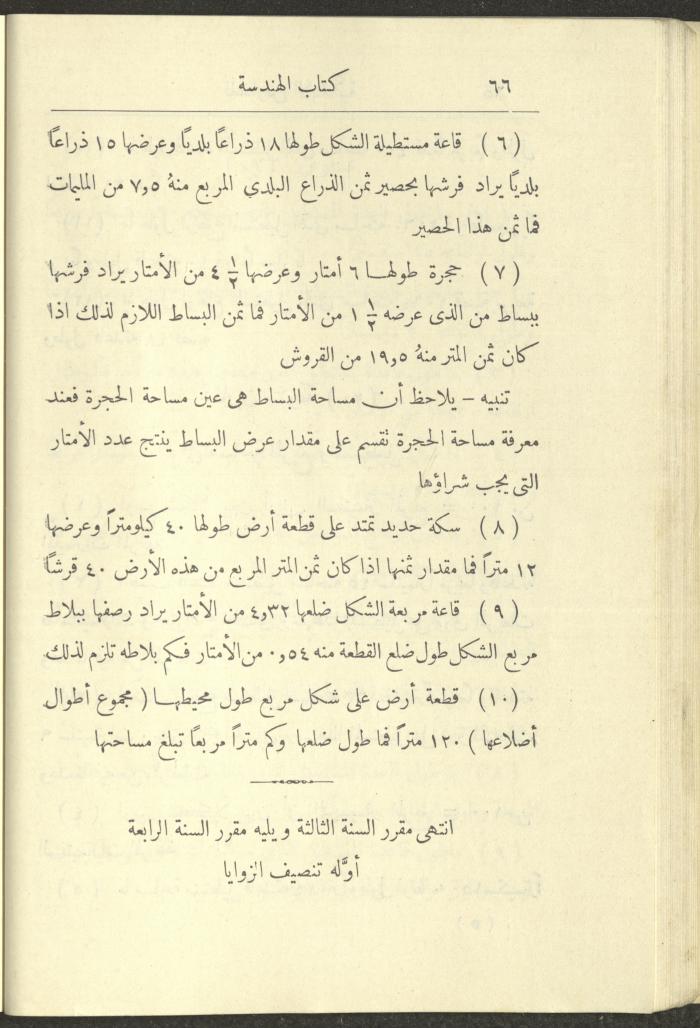 ٦٦
كتاب الهندسة
( ٦ ) قاعة مستطيلة الشكل طولها ١٨ ذراعاً بلدياً وعرضها ١٥ ذراعاً
بلدياً يراد فرشها بحصير ثمن الذراع البلدي المربع منهُ ٧٫٥ من المليمات
فما ثمن هذا الحصير
( ٧ ) حجرة طولها ٦ أمتار وعرضها ٤ ١/٢ من الأمتار يراد فرشها
ببساط من الذى عرضه ١ ١/٢ من الأمتار فما ثمن البساط اللازم لذلك اذا
كان ثمن المتر منهُ ١٩٫٥ من القروش
تنبيه – يلاحظ أن مساحة البساط هى عين مساحة الحجرة فعند
معرفة مساحة الحجرة تقسم على مقدار عرض البساط ينتج عدد الأمتار
التى يجب شراؤها
( ٨ ) سكة حديد تمتد على قطعة أرض طولها ٤٠ كيلومتراً وعرضها
١٢ متراً فما مقدار ثمنها اذا كان ثمن المتر المربع من هذه الأرض ٤٠ قرشاً
( ٩ ) قاعة مربعة الشكل ضلعها ٤٫٣٢ من الأمتار يراد رصفها ببلاط
مربع الشكل طول ضلع القطعة منه ٠٫٥٤ من الأمتار فكم بلاطه تلزم لذلك
( ١٠ ) قطعة أرض على شكل مربع طول محيطها ( مجموع أطوال
أضلاعها ) ١٢٠ متراً فما طول ضلعها وكم متراً مربعاً تبلغ مساحتها
انتهى مقرر السنة الثالثة ويليه مقرر السنة الرابعة
أوَّله تنصيف الزوايا